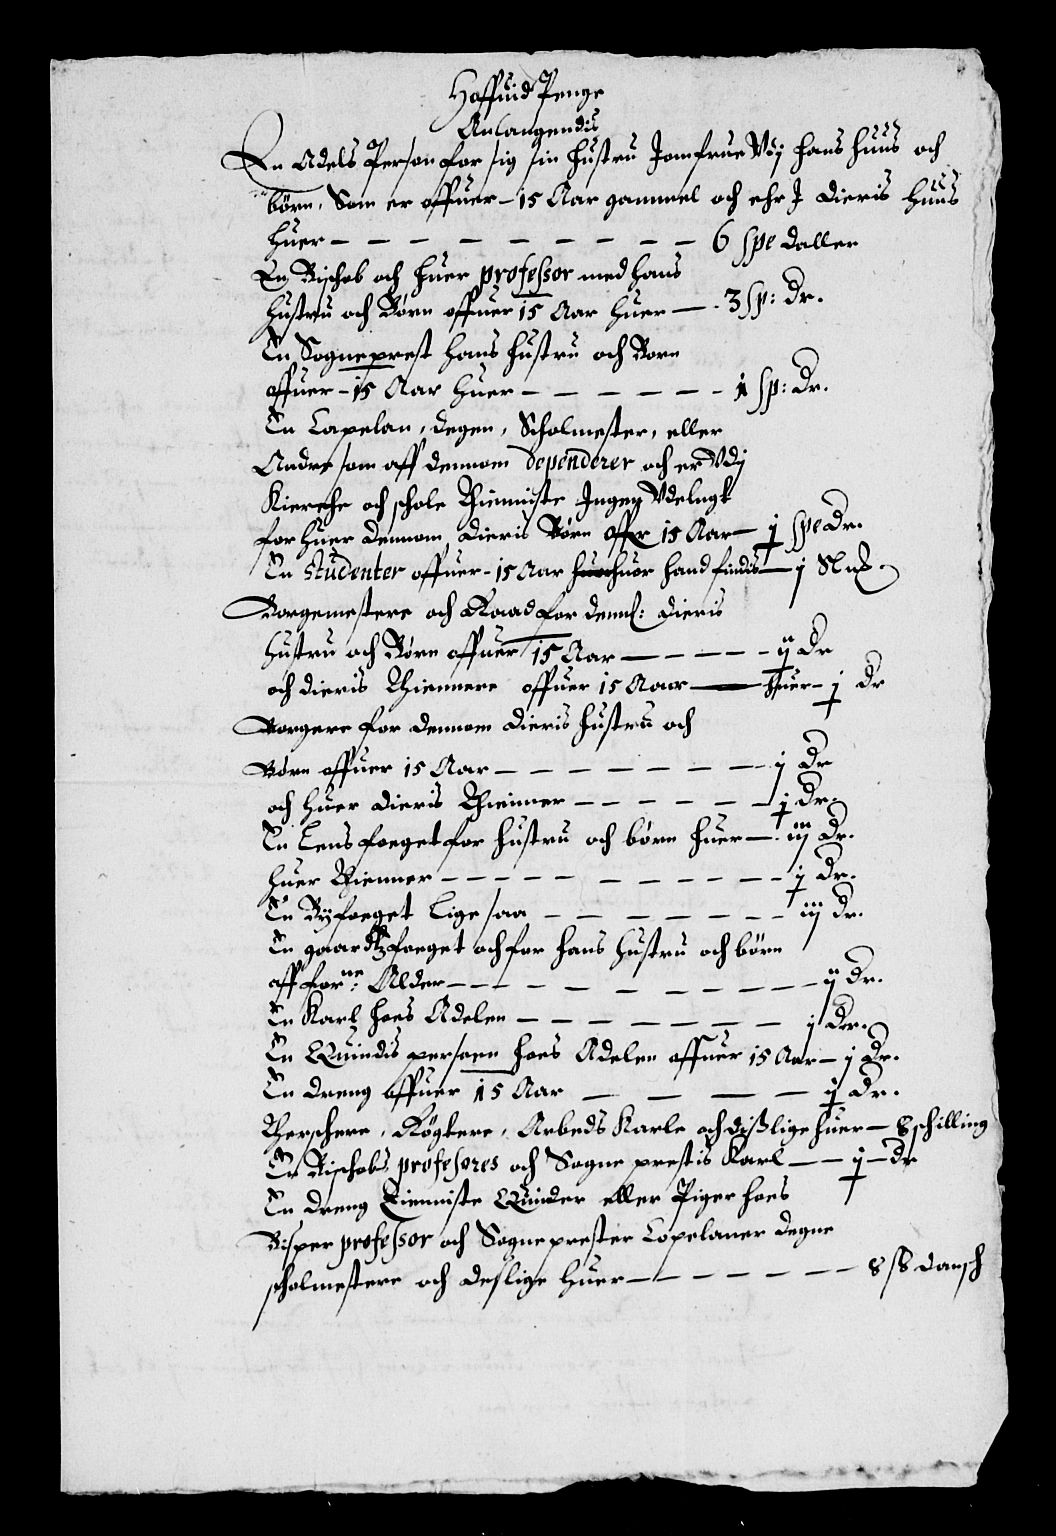 Hoffuid Penge
Anlangendis
En Adels Person for sig sin hustru Jomfrue Vdj hans huus och
børn, Som er offuer - 15 Aar gammel och ehr J dieris huus
huer — — — — — — — — 6 spe daller
En Bischob och huer professor med hans
hustru och Børn offuer 15 Aar huer — 3 sp: dr.
En Sogneprest hans hustru och Børn
offuer - 15 Aar huer — — — — — — 1 sp: dr.
En Capelan, degen, Scholmester, eller
Andre som aff dennom dependerer och er Vdj
Kiercke och schole Thienniste Ingen Vdelugt
for huer dennom dieris Børn offer 15 Aar — j spe dr.
En studenter offuer - 15 Aar huer hand findis — j
Borgemestere och Raad for denn: dieris
hustru och Børn offuer 15 Aar — — — — — ij dr
och dieris Thiennere offuer 15 Aar — huer — j dr
Borgere for dennom dieris hustru och
Børn offuer 15 Aar — — — — — — — j dr
och huer dieris Thienner — — — — — — j dr.
En Lens foeget for hustru och børn huer — iij dr.
huer Thienner — — — — — — — — — — j dr.
En Byfoeget lige saa — — — — — — — iij dr.
En gaardtzfoeget och for hans hustru och børn
aff forne: Alder — — — — — — — — — ij dr.
En Karl hoes Adelen — — — — — — — j dr.
En Quindis persoen hoes Adelen offuer 15 Aar — j dr.
En dreng offuer 15 Aar — — — — j dr.
Therschere, Røgtere, Arbeds Karle och dißlige huer — 8 schilling
En Bischobs professores och Sogne prestis Karl — — j — dr
En dreng Tienniste Quinder eller Piger hoes
Bisper professor och Sogneprester Capelaner degne
scholmestere och deslige huer — — — — — — 8 sß dansch